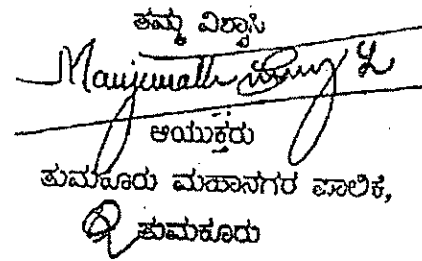 ತಮ್ಮ ವಿಶ್ವಾಸಿ
Manjunath
ಆಯುಕ್ತರು
ತುಮಕೂರು ಮಹಾನಗರ ಪಾಲಿಕೆ,
ತುಮಕೂರು